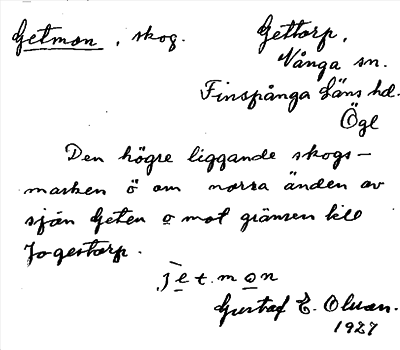 Getmon, skog. Gettorp,
Vånga sn.
Finspånga Läns hd.
Ögl
Den högre liggande skogs-
marken ö om norra änden av
sjön Geten o mot gränsen till
Jogestorp.
jet. mon
Gustaf E. Olsson.
1927